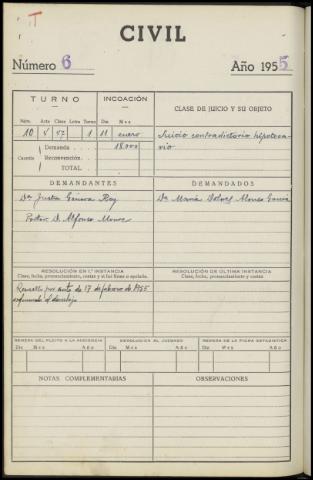 T
CIVIL
Número 6 Año 1955
TURNO INCOACIÓN CLASE DE JUICIO Y SU OBJETO
Núm. Acta Clase Letra Turno Día Mes
10 1 11 enero Juicio contradictorio hipoteca-
Cuantía Demanda 18.000 rio
Reconvención
TOTAL
DEMANDANTES DEMANDADOS
Dª Justa Rey Dª María Dolores Alonso García
Procdor D. Alfonso
RESOLUCIÓN EN 1.ª INSTANCIA RESOLUCIÓN DE ÚLTIMA INSTANCIA
Clase, fecha, pronunciamiento, costas y si fué firme o apelada. Clase, fecha, pronunciamiento y costas
Resuelto por auto de 17 de febrero de 1955
REMESA DEL PLEITO A LA AUDIENCIA DEVOLUCIÓN AL JUZGADO REMESA DE LA FICHA ESTADÍSTICA
Día Mes Año Día Mes Año Día Mes Año
NOTAS COMPLEMENTARIAS OBSERVACIONES